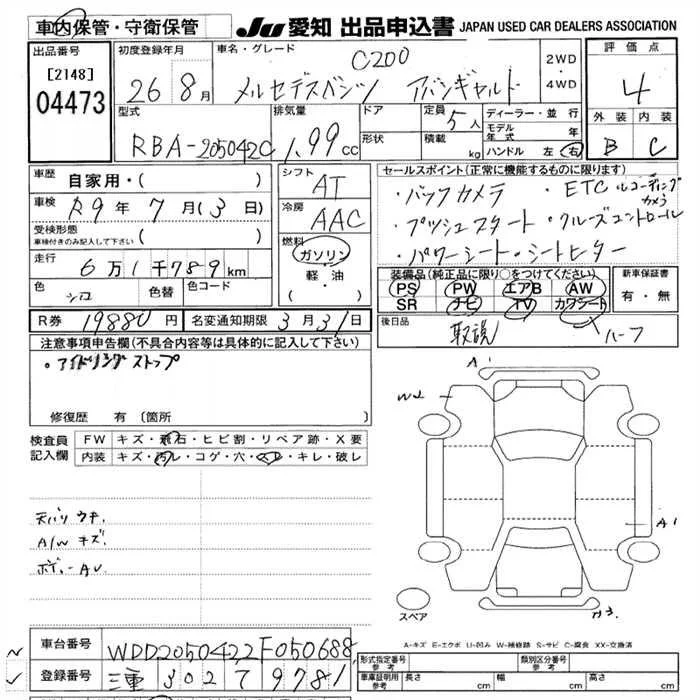 車内保管・守衛保管 JU 愛知 出品申込書 JAPAN USED CAR DEALERS ASSOCIATION
出品番号 [2148] 04473
初度登録年月 26 8月
車名・グレード C200
メルセデスベンツ アバンギャルド
2WD・4WD
評価点 4
外装 内装
B C
型式 RBA-205042C
排気量 1.99cc
ドア 形状
定員 5人
積載 kg
ディーラー・並行
モデル年式 年
ハンドル 左 右
車歴 自家用・( )
車検 R9年 7月(3日)
受検形態 車検付きのみ記入して下さい ( )
走行 6万1千789km
色 シロ 色替 色コード
シフト AT
冷房 AAC
燃料 ガソリン・軽・油 ( )
セールスポイント(正常に機能するものに限ります)
・バックカメラ ・ETC
・プッシュスタート・クルーズコントロール
・パワーシート・シートヒーター
装備品(純正品に限り○をつけてください)
PS PW エアB AW
SR ナビ TV カワシート
新車保証書 有・無
R券 19880円 名変通知期限 3月31日
後日品 取説 ハーフ
注意事項申告欄(不具合内容等は具体的に記入して下さい)
・アイドリングストップ
修復歴 有 〔箇所
検査員記入欄
FW キズ・飛石・ヒビ割・リペア跡・X要
内装 キズ・汚レ・コゲ・穴・スレ・キレ・破レ
天バリウキ
A/W キズ
ボデーAU
A1
W2
A1
スペア
A-キズ E-エクボ U-凹み W-補修跡 S-サビ C-腐食 XX-交換済
車台番号 WDD2050422F050688
登録番号 三重 302 て 9781
形式指定番号 参考 類別区分番号 参考
車庫証明用 参考 長さ cm 幅 cm 高さ cm